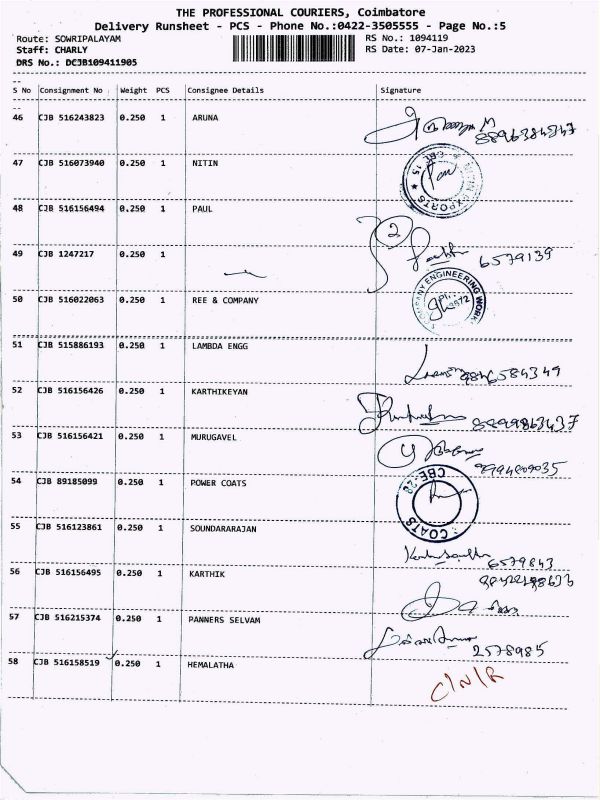 THE PROFESSIONAL COURIERS, Coimbatore
Delivery Runsheet - PCS - Phone No.:0422-3505555 - Page No.:5
Route: SOWRIPALAYAM RS No.: 1094119
Staff: CHARLY RS Date: 07-Jan-2023
DRS No.: DCJB109411905
S No Consignment No Weight PCS Consignee Details Signature
46 CJB 516243823 0.250 1 ARUNA
47 CJB 516073940 0.250 1 NITIN
CBE-15
EXPORTS
48 CJB 516156494 0.250 1 PAUL
2
49 CJB 1247217 0.250 1 6579139
50 CJB 516022063 0.250 1 REE & COMPANY
COMPANY ENGINEERING WORK
51 CJB 515886193 0.250 1 LAMBDA ENGG
52 CJB 516156426 0.250 1 KARTHIKEYAN
8899863437
53 CJB 516156421 0.250 1 MURUGAVEL
54 CJB 89185099 0.250 1 POWER COATS
CBE-28
COATS
55 CJB 516123861 0.250 1 SOUNDARARAJAN
6579843
56 CJB 516156495 0.250 1 KARTHIK
57 CJB 516215374 0.250 1 PANNERS SELVAM
2578985
58 CJB 516158519 0.250 1 HEMALATHA
C/N/R